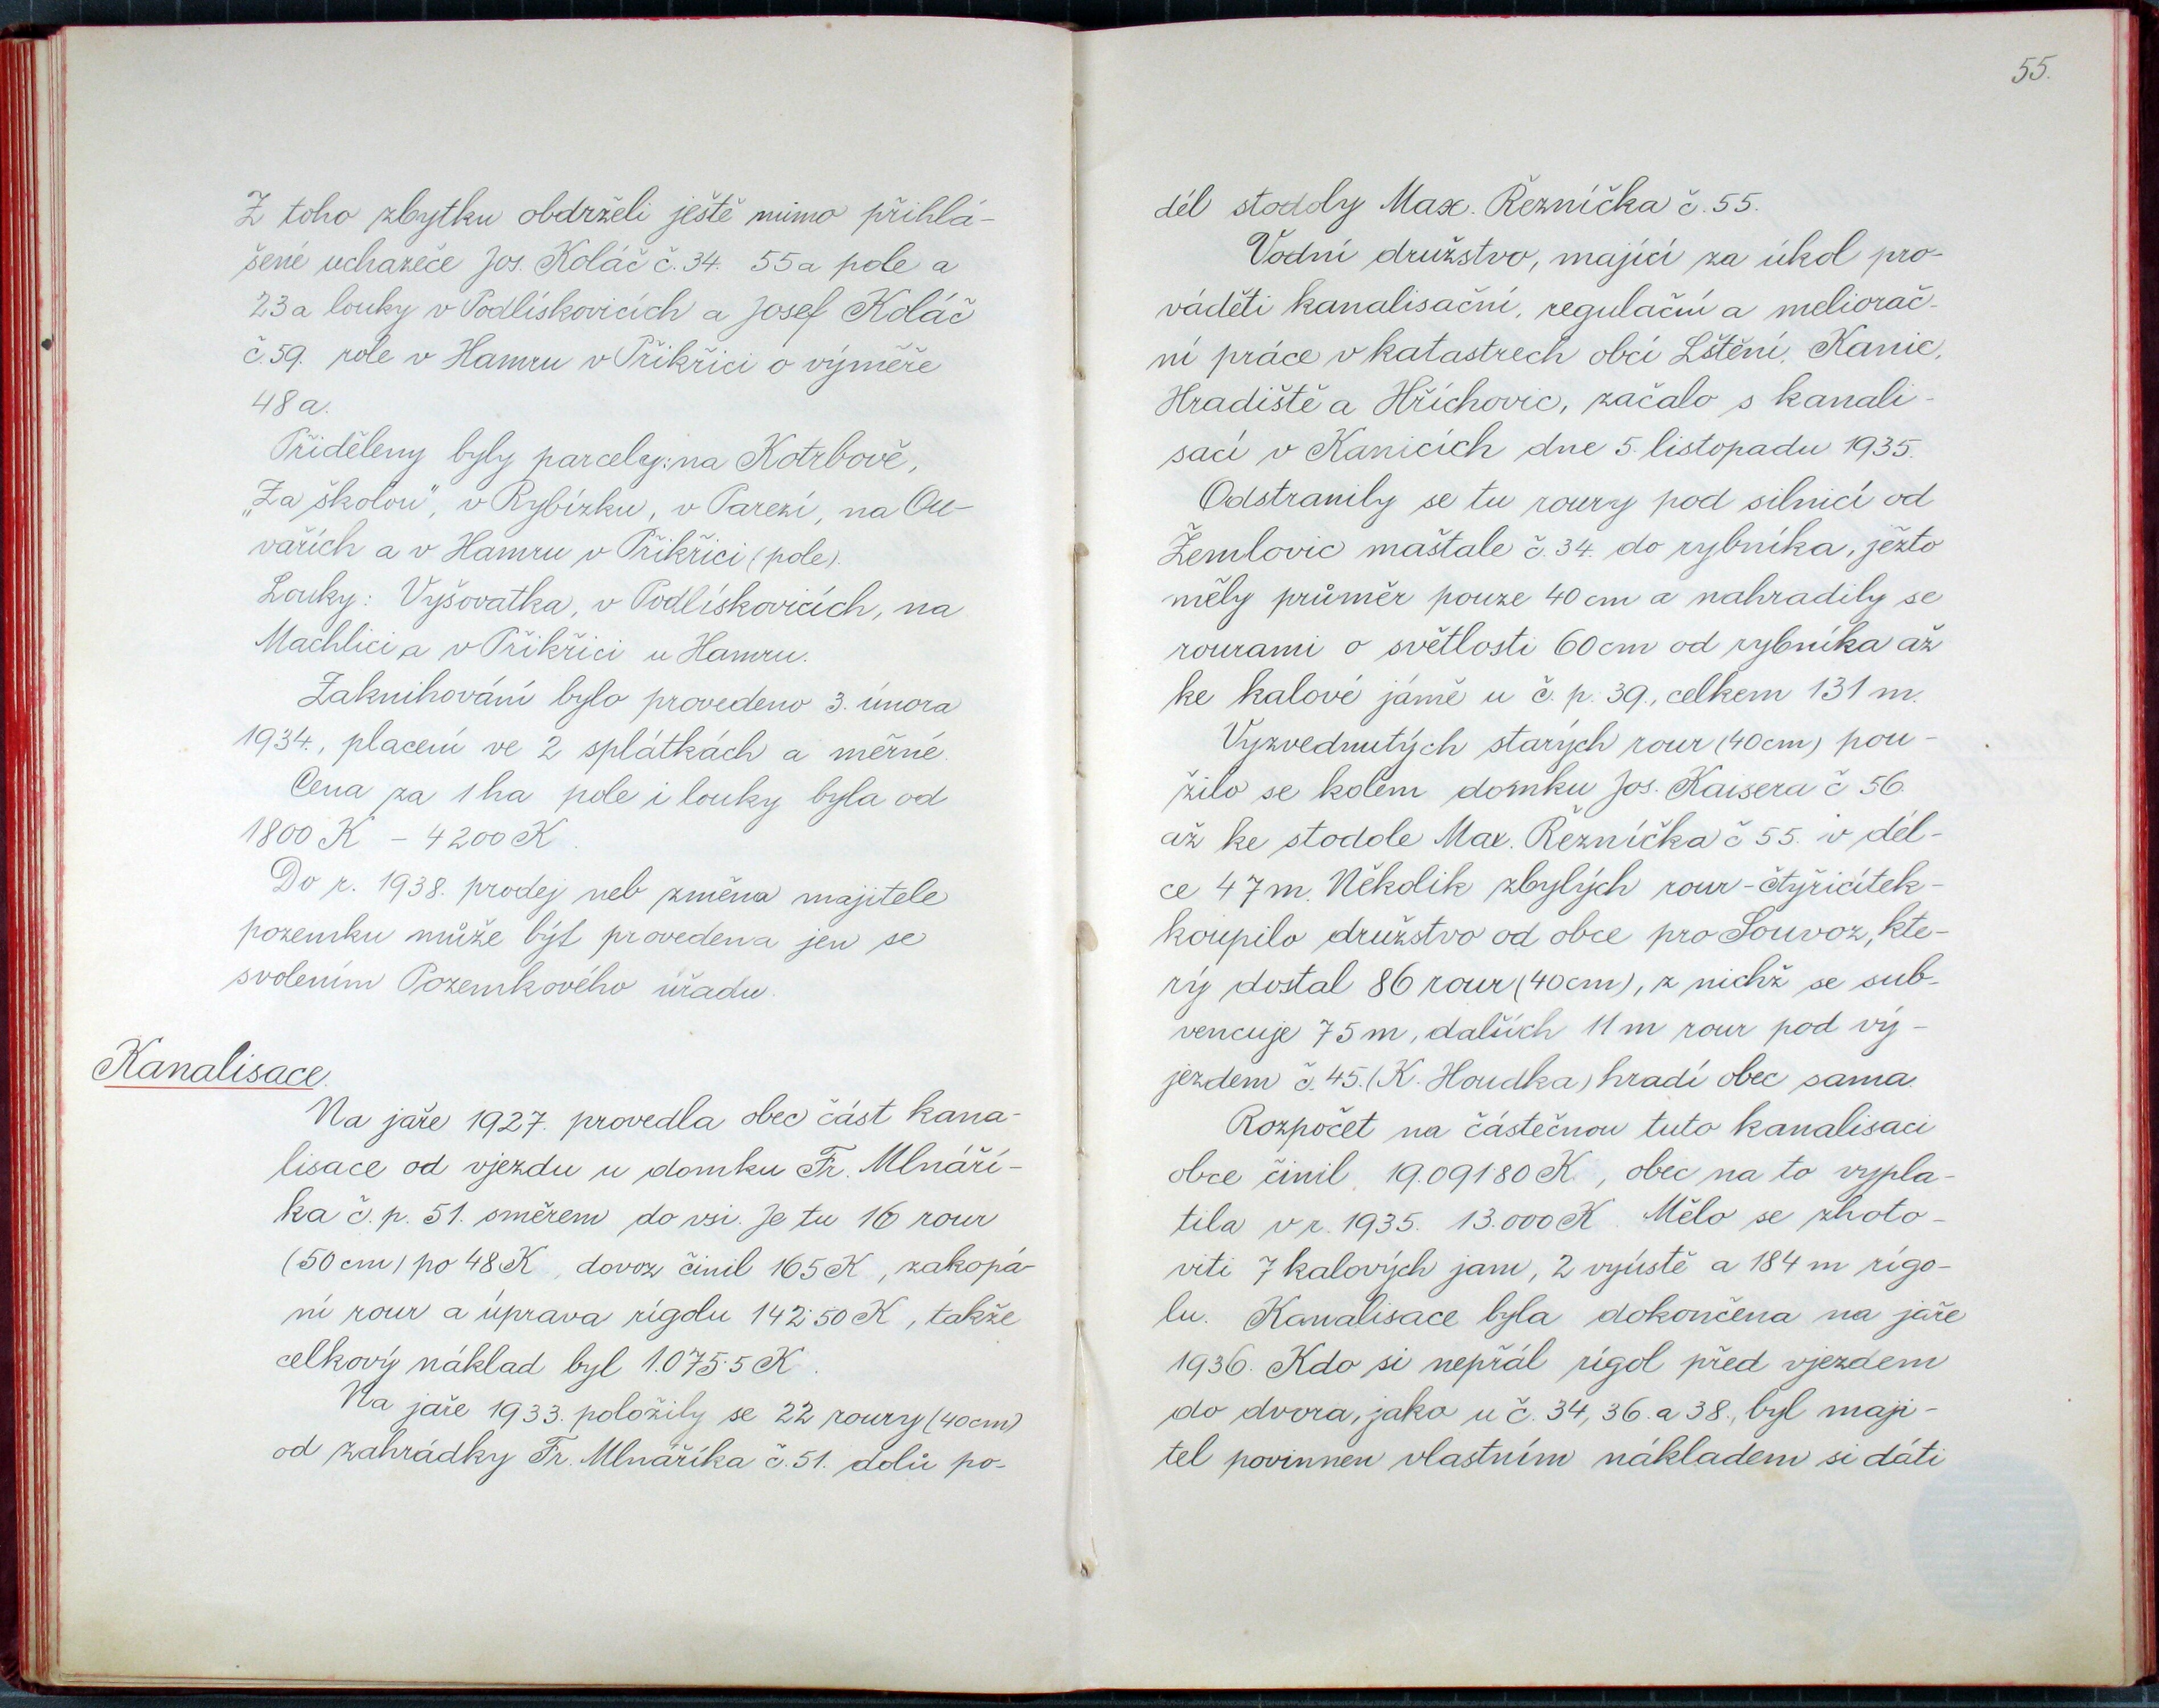 Z toho zbytku obdrželi ještě mimo přihlá-
šené uchazeče Jos. Koláč č. 34. 55 a pole a
23 a louky v Podlískovicích a Josef Koláč
č. 59. role v Hamru v Přikřici o výměře
48 a.
Přiděleny byly parcely: na Kotrbově,
„Za školou", v Rybízku, v Parezí, na Ou-
vařích a v Hamru v Přikřici (pole).
Louky: Vyšovatka, v Podlískovicích, na
Machlici a v Přikřici u Hamru.
Zaknihování bylo provedeno 3. února
1934., placení ve 2 splátkách a měrné.
Cena za 1 ha pole i louky byla od
1800 K - 4200 K.
Do r. 1938. prodej neb změna majitele
pozemku může být provedena jen se
svolením Pozemkového úřadu.
Kanalisace.
Na jaře 1927. provedla obec část kana-
lisace od vjezdu u domku Fr. Mlnáří-
ka č. p. 51. směrem do vsi. Je tu 16 rour
(50 cm) po 48 K, dovoz činil 165 K, zakopá-
ní rour a úprava rigolu 142·50 K, takže
celkový náklad byl 1.075·5 K.
Na jaře 1933. položily se 22 roury (40 cm)
od zahrádky Fr. Mlnáříka č. 51. dolů po-
55.
dél stodoly Max. Řezníčka č. 55.
Vodní družstvo, mající za úkol pro-
váděti kanalisační, regulační a meliorač-
ní práce v katastrech obcí Lštění, Kanic,
Hradiště a Hříchovic, začalo s kanali-
sací v Kanicích dne 5. listopadu 1935.
Odstranily se tu roury pod silnicí od
Žemlovic maštale č. 34. do rybníka, ježto
měly průměr pouze 40 cm a nahradily se
rourami o světlosti 60 cm od rybníka až
ke kalové jámě u č. p. 39., celkem 131 m.
Vyzvednutých starých rour (40 cm) pou-
žilo se kolem domku Jos. Kaisera č 56.
až ke stodole Max. Řezníčka č 55. v dél-
ce 47 m. Několik zbylých rour - čtyřicítek -
koupilo družstvo od obce pro Souvoz, kte-
rý dostal 86 rour (40 cm), z nichž se sub-
vencuje 75 m, dalších 11 m rour pod vý-
jezdem č. 45. (K. Houdka) hradí obec sama.
Rozpočet na částečnou tuto kanalisaci
obce činil 19.091·80 K., obec na to vypla-
tila v r. 1935. 13.000 K. Mělo se zhoto-
viti 7 kalových jam, 2 vyústě a 184 m rigo-
lu. Kanalisace byla dokončena na jaře
1936. Kdo si nepřál rigol před vjezdem
do dvora, jako u č. 34, 36. a 38., byl maji-
tel povinnen vlastním nákladem si dáti